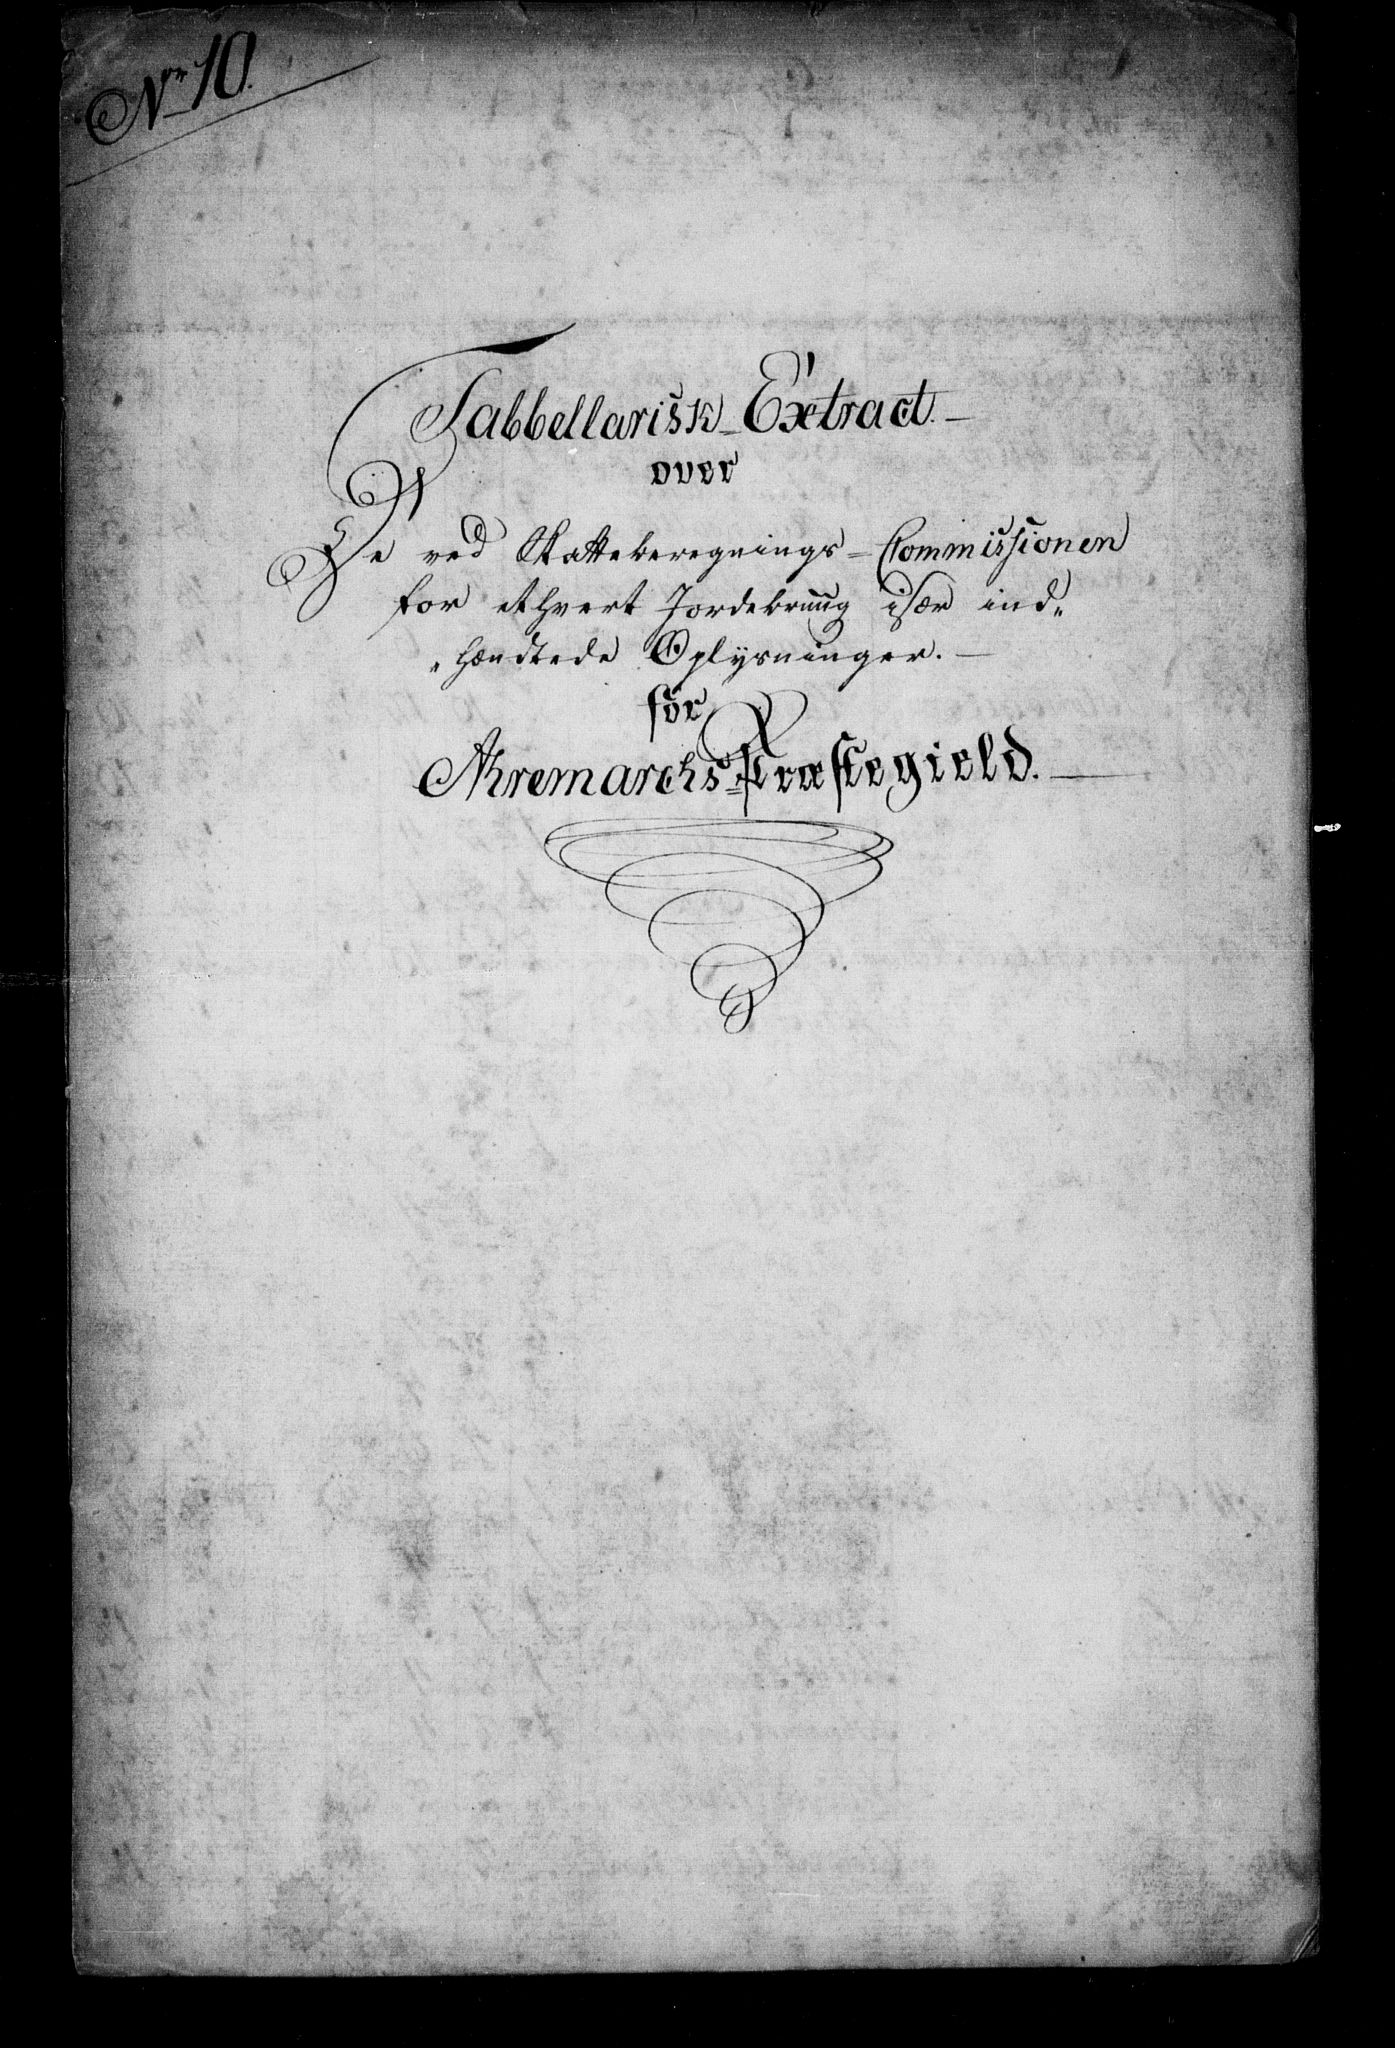 Nr 10.
Tabbellarisk Extract.
over
De ved Skatteberegnings-Commissionen
for ethvert Jordebruug især ind„
„hændtede Oplysninger.
for
Ahremarchs-Præstegield.